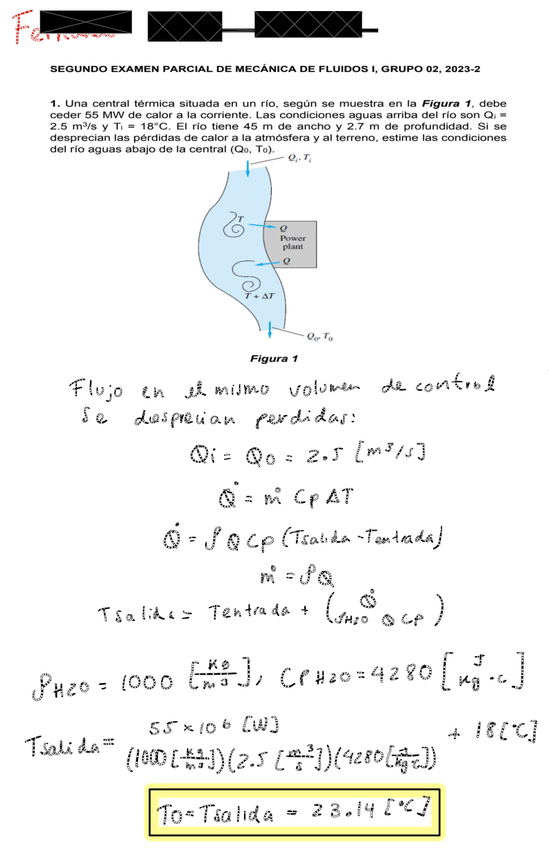 SEGUNDO EXAMEN PARCIAL DE MECÁNICA DE FLUIDOS I, GRUPO 02, 2023-2
1. Una central térmica situada en un río, según se muestra en la Figura 1, debe
ceder 55 MW de calor a la corriente. Las condiciones aguas arriba del río son Qᵢ =
2.5 m³/s y Tᵢ = 18°C. El río tiene 45 m de ancho y 2.7 m de profundidad. Si se
desprecian las pérdidas de calor a la atmósfera y al terreno, estime las condiciones
del río aguas abajo de la central (Q₀, T₀).
Qᵢ, Tᵢ
T
Q
Power
plant
Q
T + ΔT
Q₀, T₀
Figura 1
Flujo en el mismo volumen de control
Se desprecian perdidas:
Qi = Qo = 2.5 [m³/s]
Q̇ = ṁ Cp ΔT
Q̇ = ρ Q Cp (Tsalida - Tentrada)
ṁ = ρQ
Tsalida = Tentrada + (Q̇ / ρH2O Q Cp)
ρH2O = 1000 [kg/m³], CpH2O = 4280 [J/kg·c]
Tsalida = 55×10⁶ [W] / (1000 [kg/m³])(2.5 [m³/s])(4280 [J/kg°c]) + 18[°C]
To = Tsalida = 23.14 [°C]